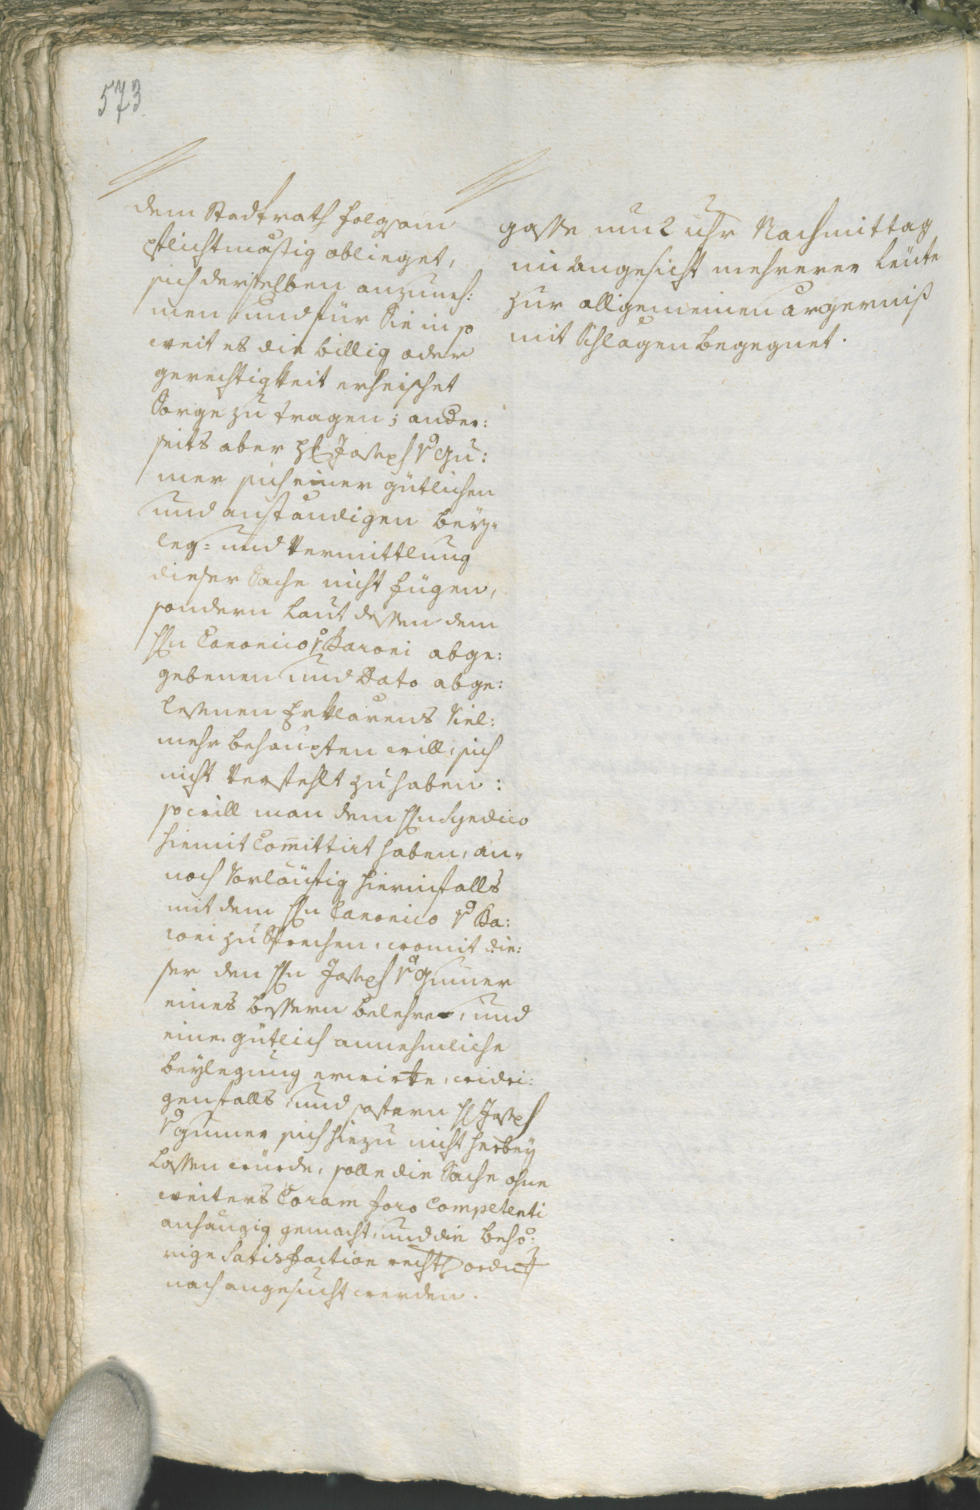 573
dem Stadtrath folgsam
pflichtmäsig oblieget,
sich derselben anzuneh:
men, und für Sie in so
weit es die billig oder
gerechtigkeit erheischet
Sorge zu tragen; ander:
seits aber H Joseph v Gu:
mer sich einer gütlichen
und anständigen beÿ=
leg= und Vermittlung
dieser Sache nicht fügen,
sondern laut dessen dem
Hn Canonico v Baroni abge:
gebenen und Dato abge:
lesenen Erklärens viel:
mehr behaupten will, sich
nicht verfehlt zu haben:
so will man dem Hn Syndico
hiemit Com̅ittirt haben, an=
noch vorläufig hierinfalls
mit dem Hn Canonico v Ba:
roni zu Sprechen, womit die:
ser den Hn Joseph v Gumer
eines bessern belehre, und
eine gütlich annehmliche
beÿlegung erwirke, widri:
genfalls, und sofern H Joseph
v Gumer sich hiezu nicht herbeÿ
lassen würde, solle die Sache ohne
weiters Coram foro Competenti
anhängig gemacht, und die behö:
rige Satisfaction rechtl ordn
nach angesucht werden.
gasse um 2 uhr Nachmittag
in angesicht mehrerer leüte
zur allgemeinen ärgerniß
mit Schlägen begegnet.